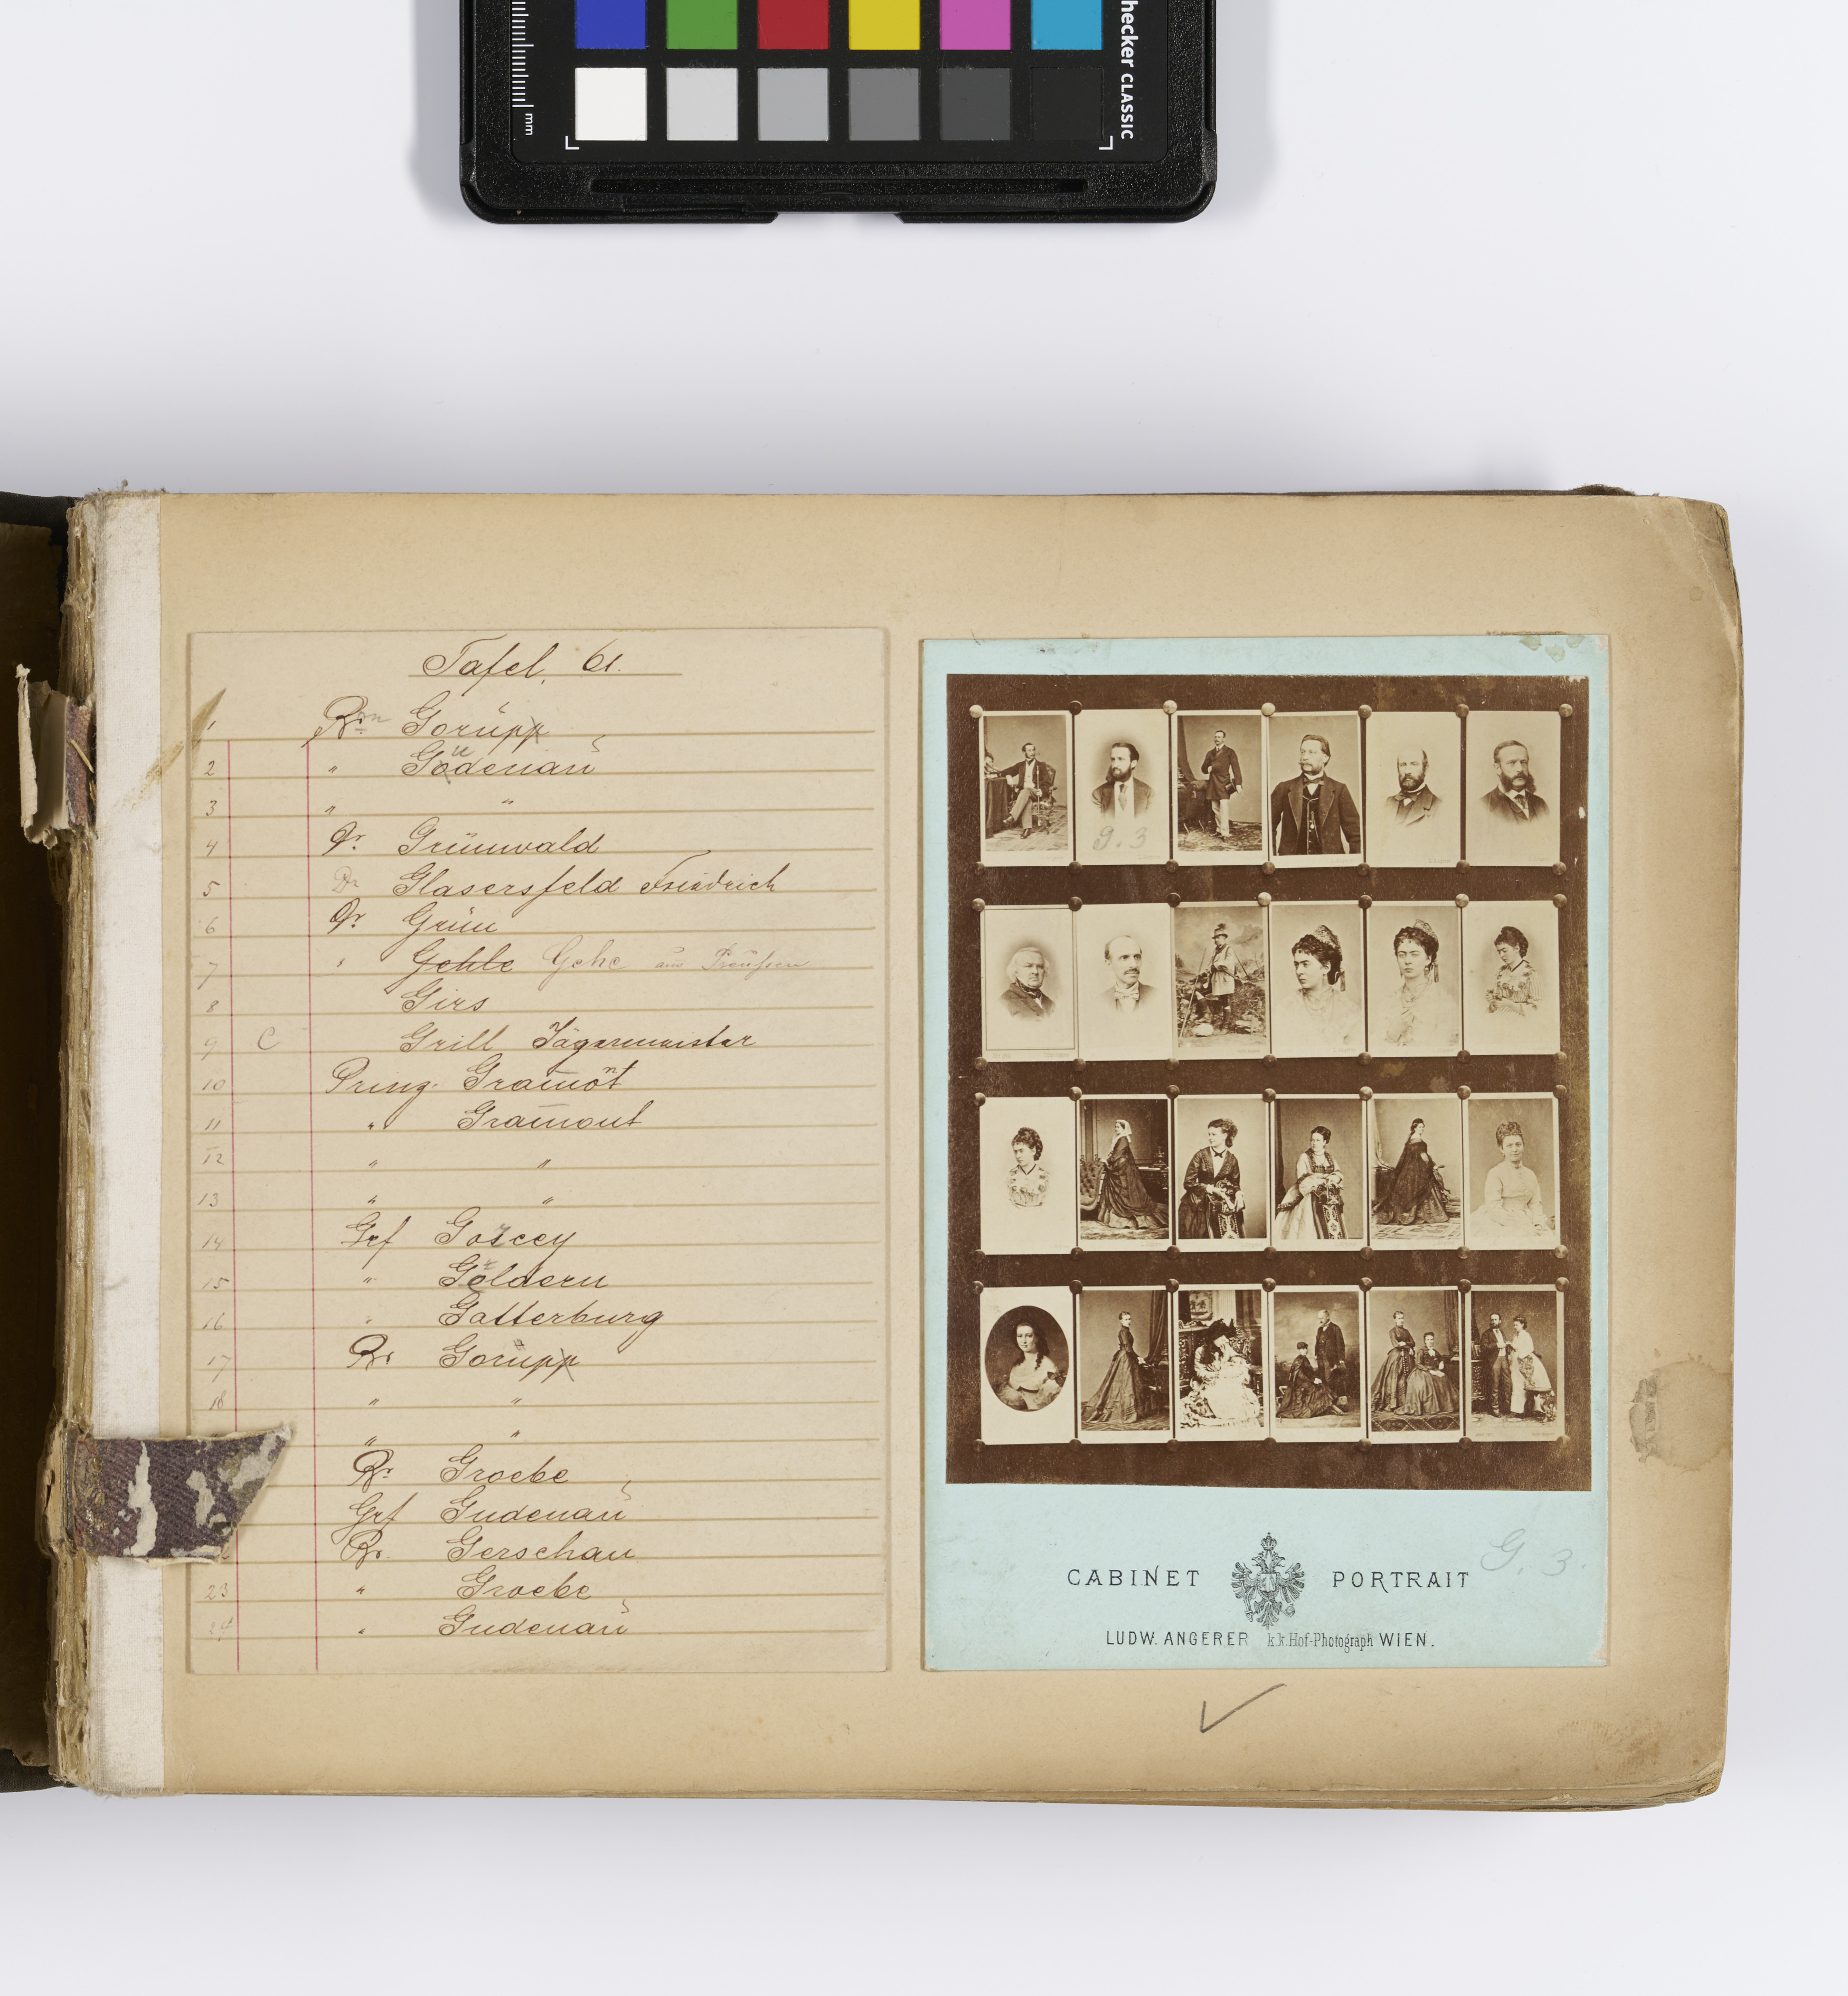 hecker CLASSIC
mm
Tafel. 61.
1 Brn Gorüpp
2 " Güdenau
3 " "
4 Dr. Grünwald
5 Dr Glasersfeld Friedrich
6 Dr. Grün
7 " Gehle Gehe aus Preußen
8 Girs
9 C Grill Jägermeister
10 Prinz Gramont
11 " Gramont
12 " "
13 " "
14 Grf Gozcey
15 " Geldern
16 " Gatterburg
17 Br Gorüpp
18 " "
" "
Br Groebe
Grf Gudenau
Br. Gerschau
23 " Groebe
24 " Gudenau
g. 3
CABINET PORTRAIT
G. 3.
LUDW. ANGERER k.k.Hof-Photograph WIEN.